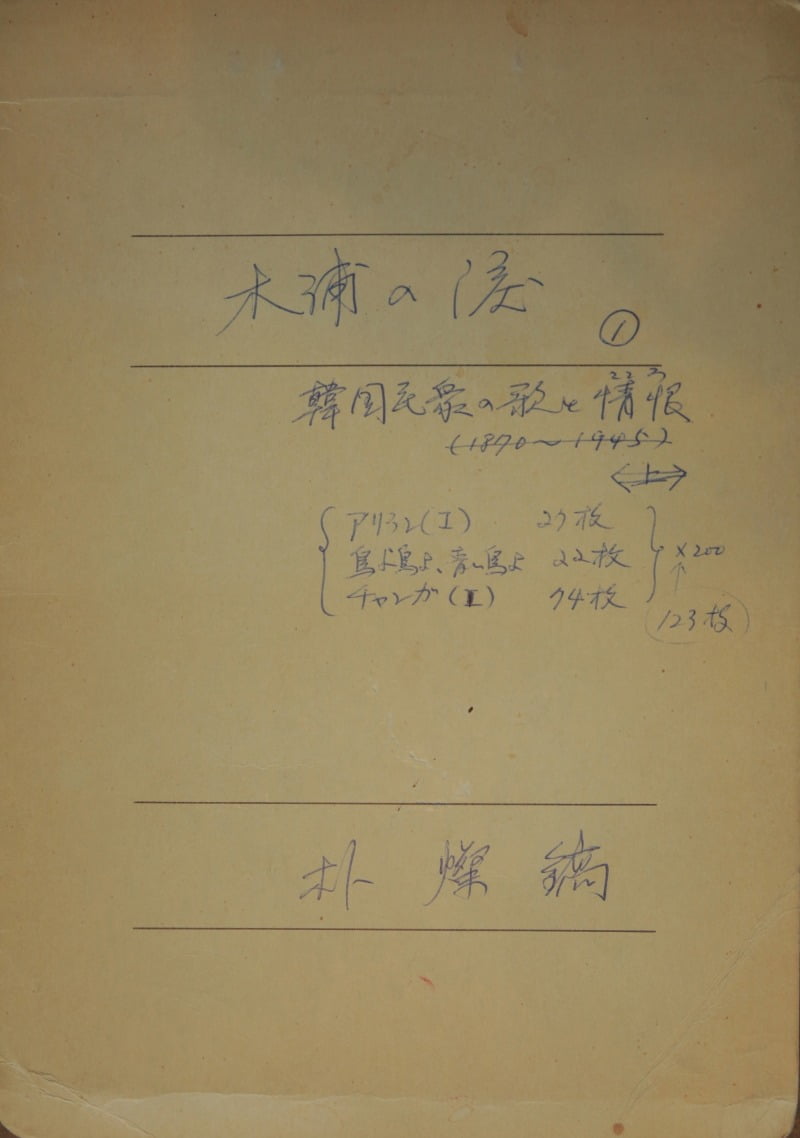 木浦の涙
①
韓国民衆の歌と情恨
(1870〜1945)
上
アリラン(I) 27枚
鳥よ鳥よ、青い鳥よ 22枚
チャンガ(I) 74枚
×200
123枚
朴 燦 鎬